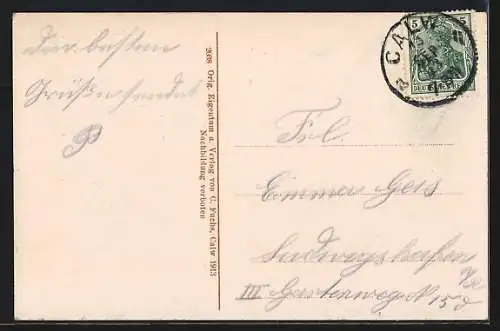 Die besten
Grüße sendet
P
2028 Orig. Eigentum u. Verlag von C. Fuchs, Calw 1913
Nachbildung verboten
CALW
5 5
DEUTSCHES
Frl.
Emma Geis
Ludwigshafen
III Gartenweg N 15